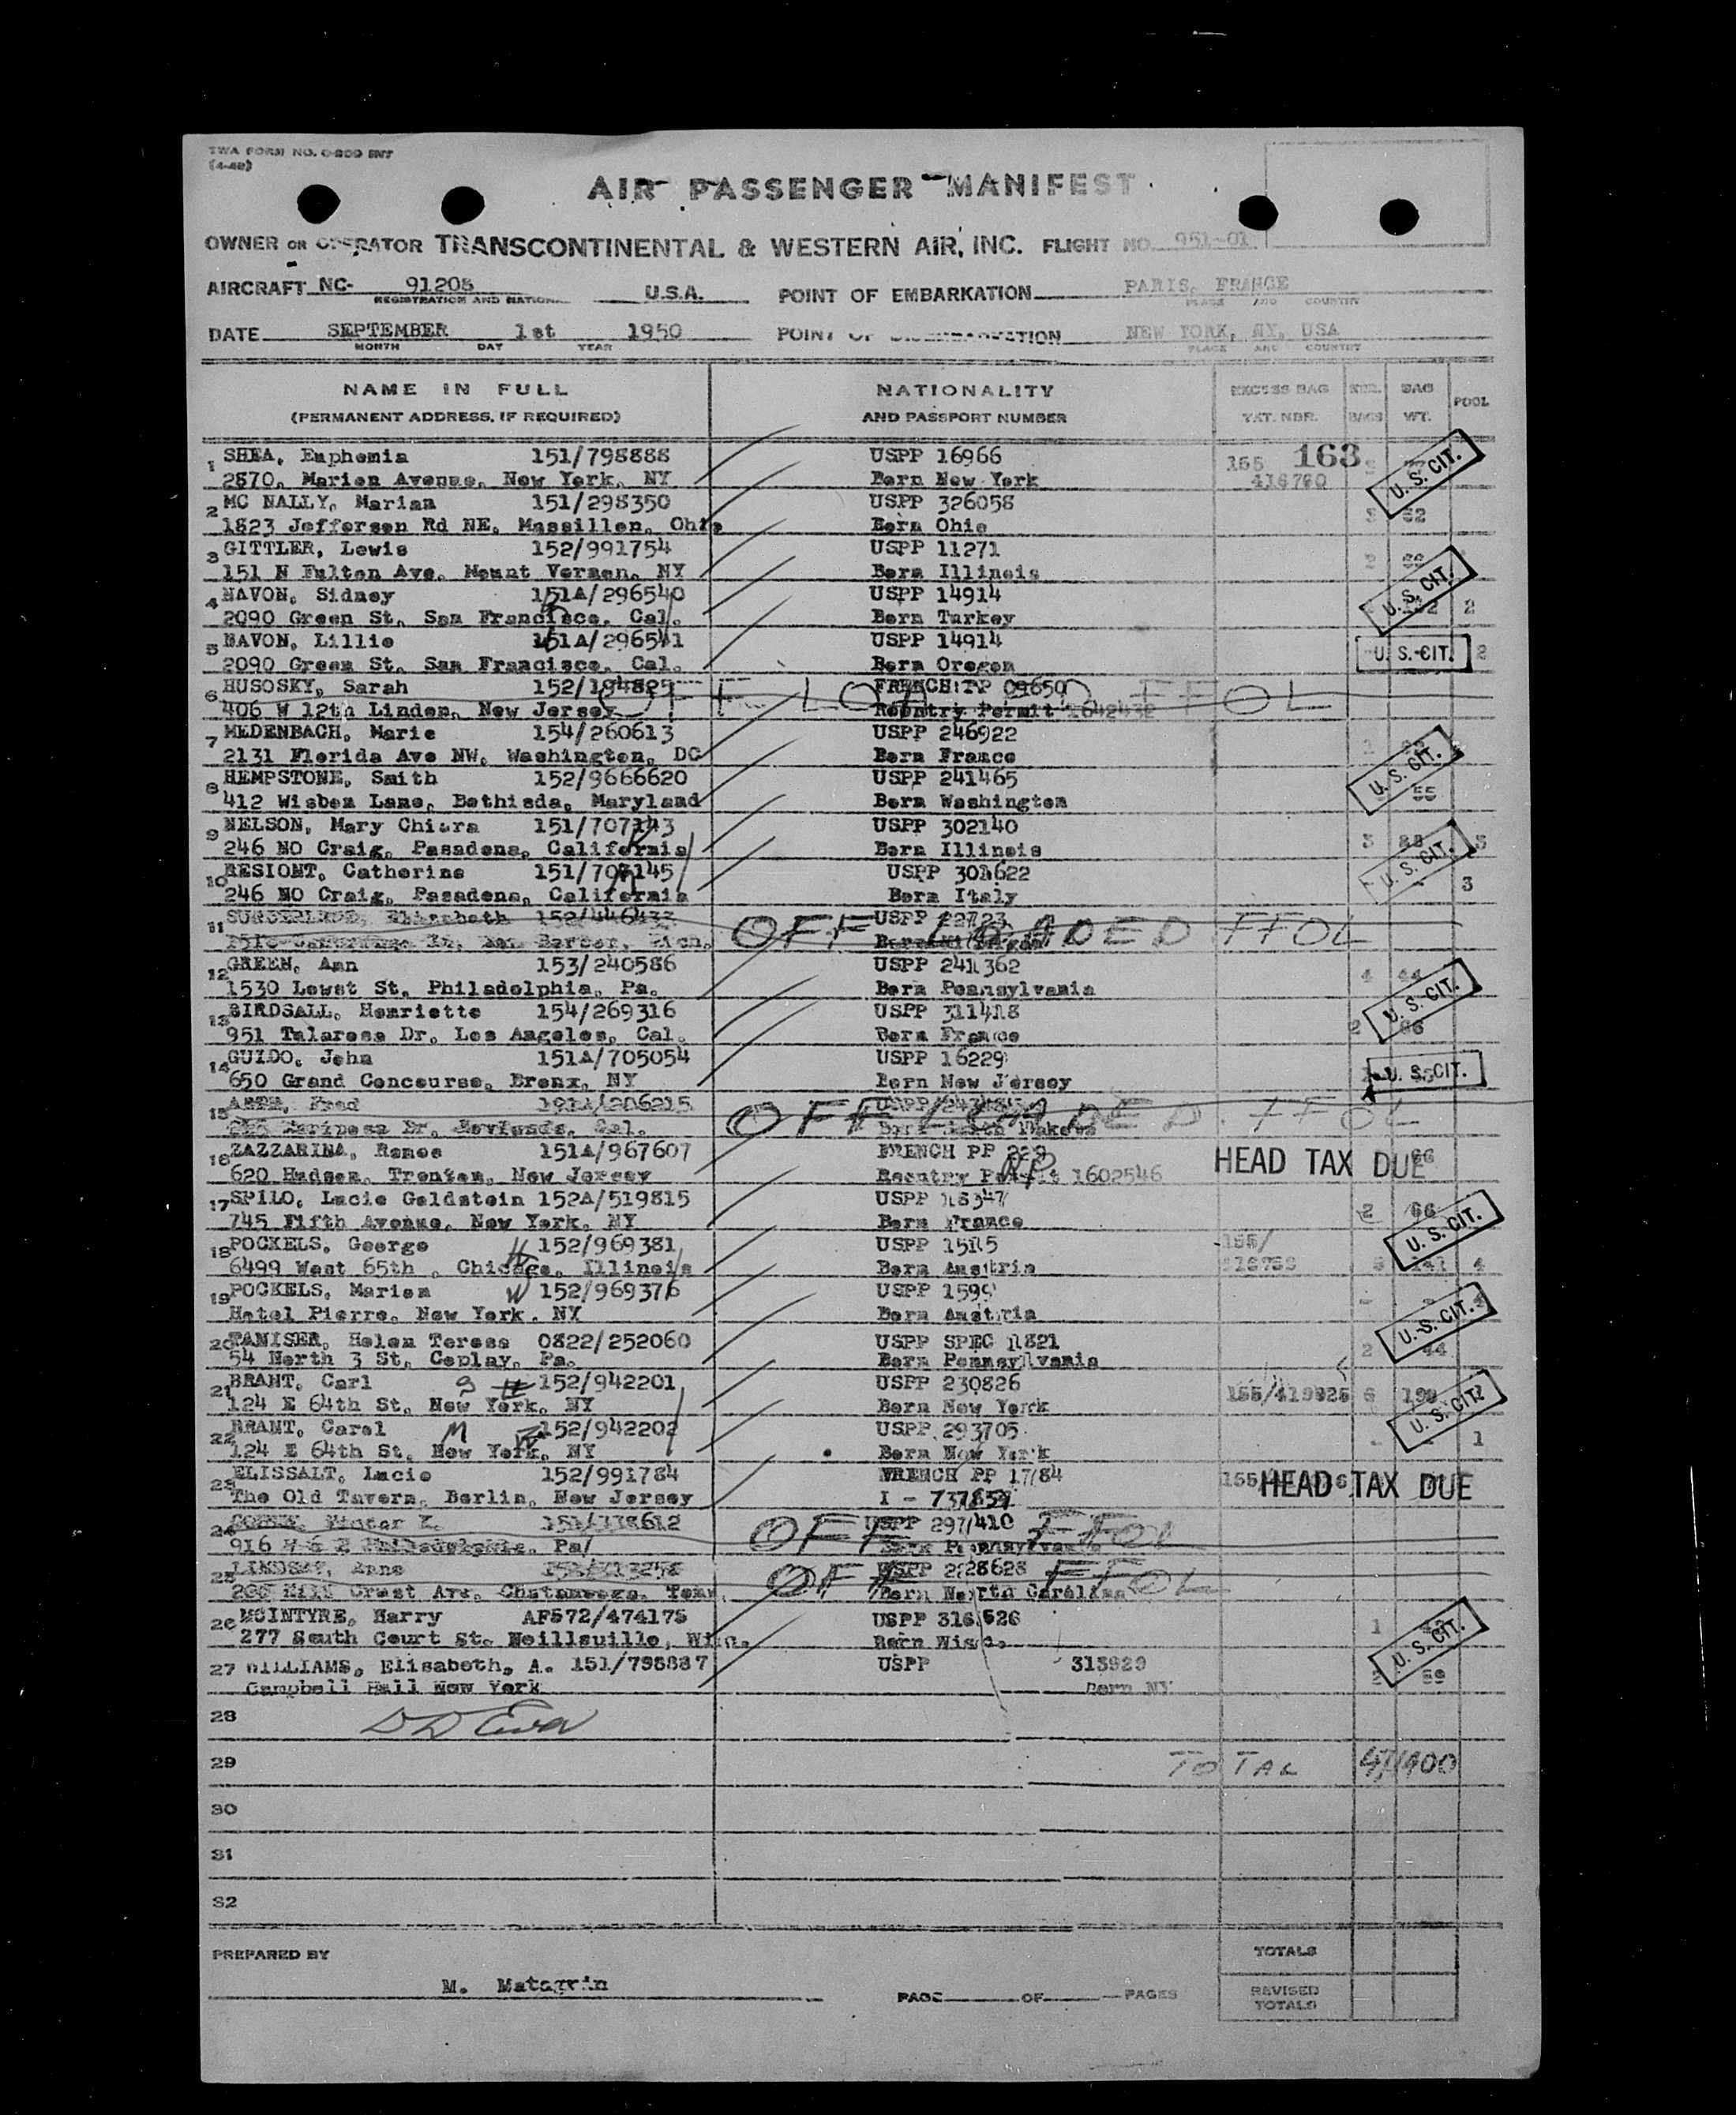 TWA FORM NO. O-800 INT
(4-48)
AIR PASSENGER MANIFEST
OWNER OR OPERATOR TRANSCONTINENTAL & WESTERN AIR, INC. FLIGHT NO. 951-01
AIRCRAFT NC- 91205 U.S.A. POINT OF EMBARKATION PARIS, FRANCE
REGISTRATION AND NATION PLACE AND COUNTRY
DATE SEPTEMBER 1st 1950 POINT OF NEW YORK, NY, USA
MONTH DAY YEAR PLACE AND COUNTRY
NAME IN FULL NATIONALITY EXCESS BAG NBR. BAG POOL
(PERMANENT ADDRESS, IF REQUIRED) AND PASSPORT NUMBER TKT. NBR. BAGS WT.
1 SHEA, Euphemia 151/798888 USPP 16966 155 163 U. S. CIT.
2870, Marion Avenue, New York, NY Born New York 416760
2 MC NALLY, Marian 151/298350 USPP 326058
1823 Jefferson Rd NE, Massillon, Ohio Born Ohio 3 52
3 GITTLER, Lewis 152/991754 USPP 11271
151 N Fulton Ave, Mount Vernon, NY Born Illinois
4 NAVON, Sidney 151A/296540 USPP 14914 U. S. CIT. 2
2090 Green St, San Francisco, Cal. Born Turkey
5 NAVON, Lillie 151A/296541 USPP 14914 U. S. CIT. 2
2090 Green St, San Francisco, Cal. Born Oregon
6 HUSOSKY, Sarah 152/194825 FRENCH TP 09650 OFF LOADED FFOL
406 W 12th Linden, New Jersey Reentry Permit 1642432
7 MEDENBACH, Marie 154/260613 USPP 246922
2131 Florida Ave NW, Washington, DC Born France U. S. CIT.
8 HEMPSTONE, Smith 152/9666620 USPP 241465
412 Wisbem Lane, Bethisda, Maryland Born Washington 55
9 NELSON, Mary Chiara 151/707143 USPP 302140 3 88 3
246 NO Craig, Pasadena, California Born Illinois U. S. CIT.
10 RESIONT, Catherine 151/707145 USPP 301622 3
246 NO Craig, Pasadena, California Born Italy
11 Elizabeth 152/446433 USPP 22723 OFF LOADED FFOL
12 GREEN, Ann 153/240586 USPP 241362 4 44
1530 Lowst St, Philadelphia, Pa. Born Pennsylvania U. S. CIT.
13 BIRDSALL, Henriette 154/269316 USPP 311418
951 Talarosa Dr, Los Angeles, Cal. Born France 2 66
14 GUIDO, John 151A/705054 USPP 16229 U. S. CIT.
650 Grand Concourse, Bronx, NY Born New Jersey
15 Fred OFF LOADED FFOL
Mariposa Dr. Cal. Born
16 ZAZZARINA, Renee 151A/967607 FRENCH PP 229 HEAD TAX DUE 66
620 Hudson, Trenton, New Jersey Reentry Permit 1602546
17 SPILO, Lucie Goldstein 152A/519815 USPP 18347 2 66
745 Fifth Avenue, New York, NY Born France U. S. CIT.
18 POCKELS, George H 152/969381 USPP 15115 155/
6499 West 65th , Chicago, Illinois Born Austria 4
19 POCKELS, Marion W 152/969376 USPP 1599
Hotel Pierre, New York, NY Born Austria U. S. CIT.
20 TANISER, Helen Teress 0822/252060 USPP SPEC 11821
54 North 3 St, Coplay, Pa. Born Pennsylvania 2 44
21 BRANT, Carl 152/942201 USPP 230826 155/419925 6 U. S. CIT.
124 E 64th St, New York, NY Born New York
22 BRANT, Carol M 152/942202 USPP 293705
124 E 64th St, New York, NY Born New York 1
23 ELISSALT, Lucie 152/991784 FRENCH PP 17784 HEAD TAX DUE
The Old Tavern, Berlin, New Jersey I - 737857
24 USPP 297410 OFF FFOL
916 Philadelphia, Pa/ Born Pennsylvania
25 LINDSAY, Anne USPP 228628 OFF FFOL
Crest Ave, Born North Carolina
26 MCINTYRE, Harry AF572/474175 USPP 316526 1 U. S. CIT.
277 South Court St. Neillsville, Wisc. Born Wisc.
27 WILLIAMS, Elisabeth, A. 151/798887 USPP 313929 2 59
Campbell Hall New York Born NY
28
29 TOTAL 47/1400
30
31
32
PREPARED BY TOTALS
M. Matagrin PAGE OF PAGES REVISED
TOTALS